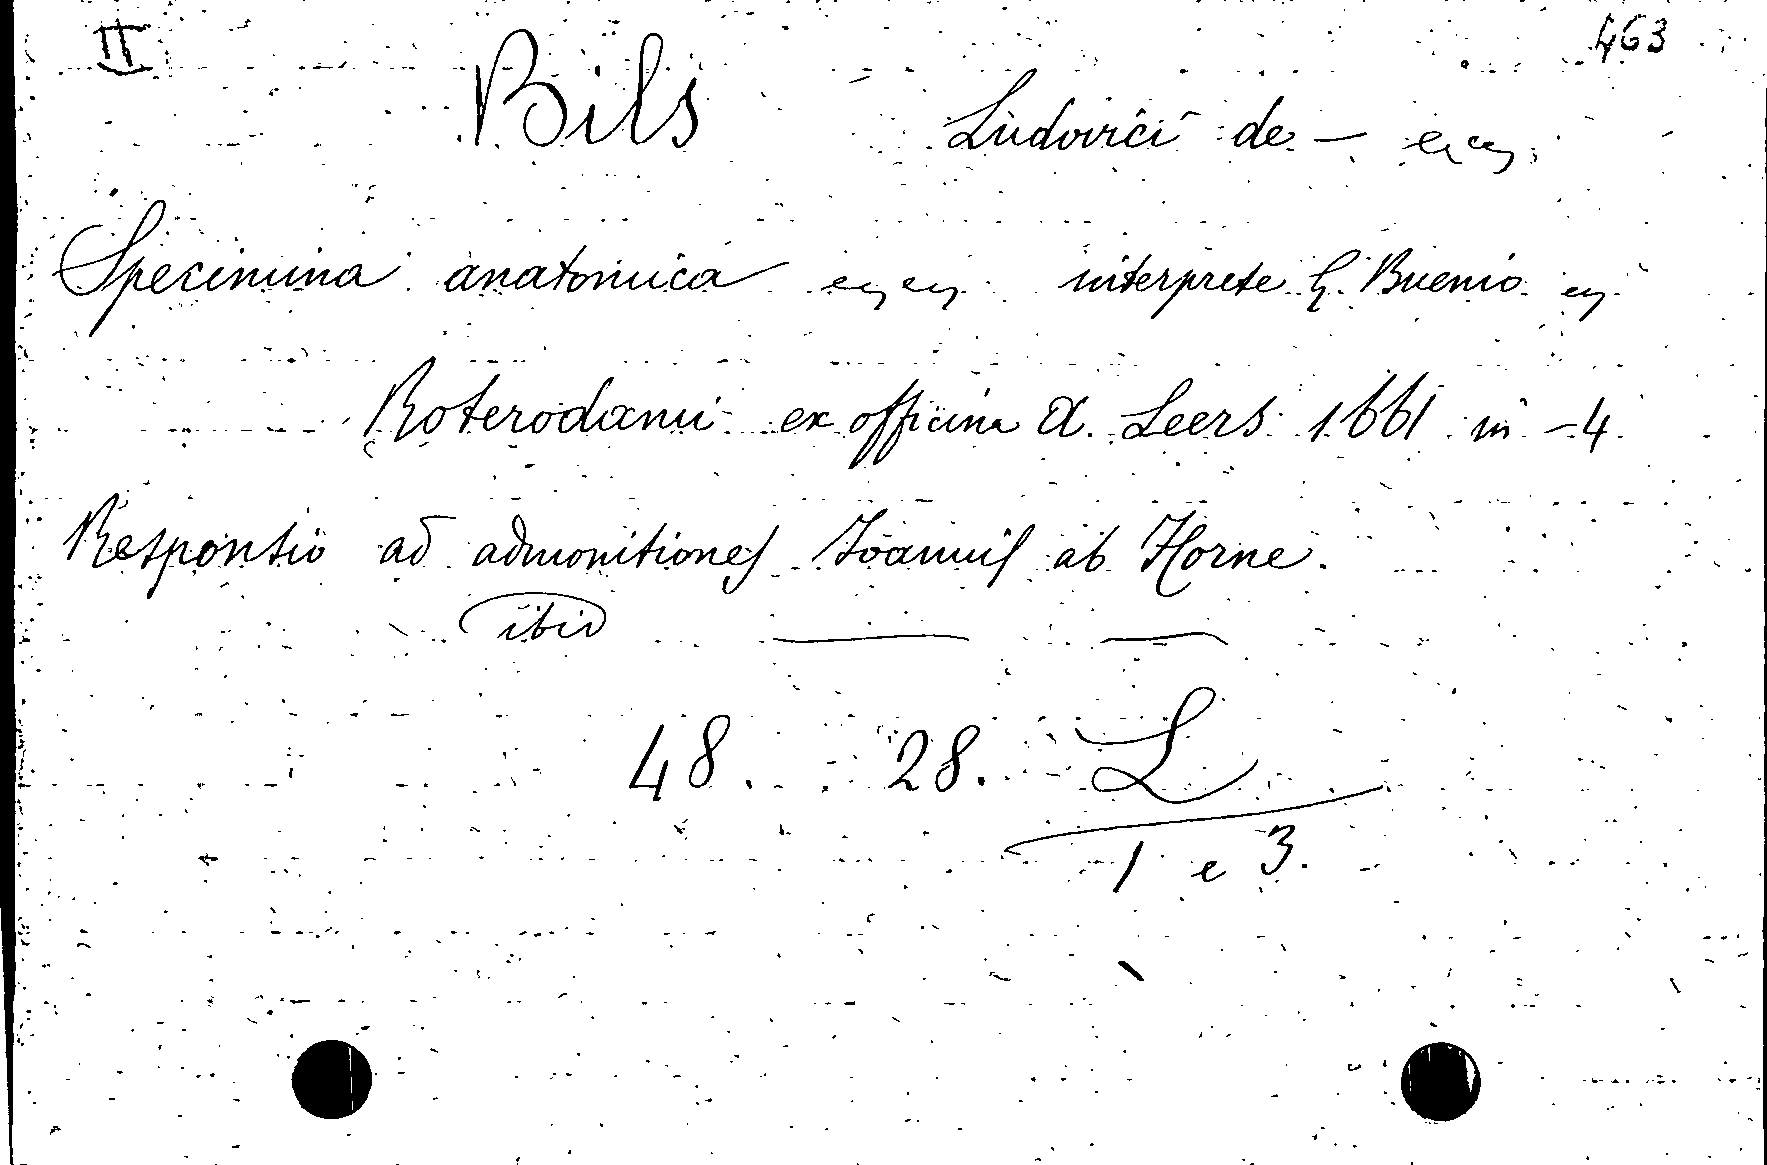 II 463
Bils Ludovici de —
Specimina anatomica interprete G. Buenio
Roterodami ex officina A. Leers 1661 in -4
Responsio ad admonitiones Joannis ab Horne.
ibid
48. 28. L
1 e 3.